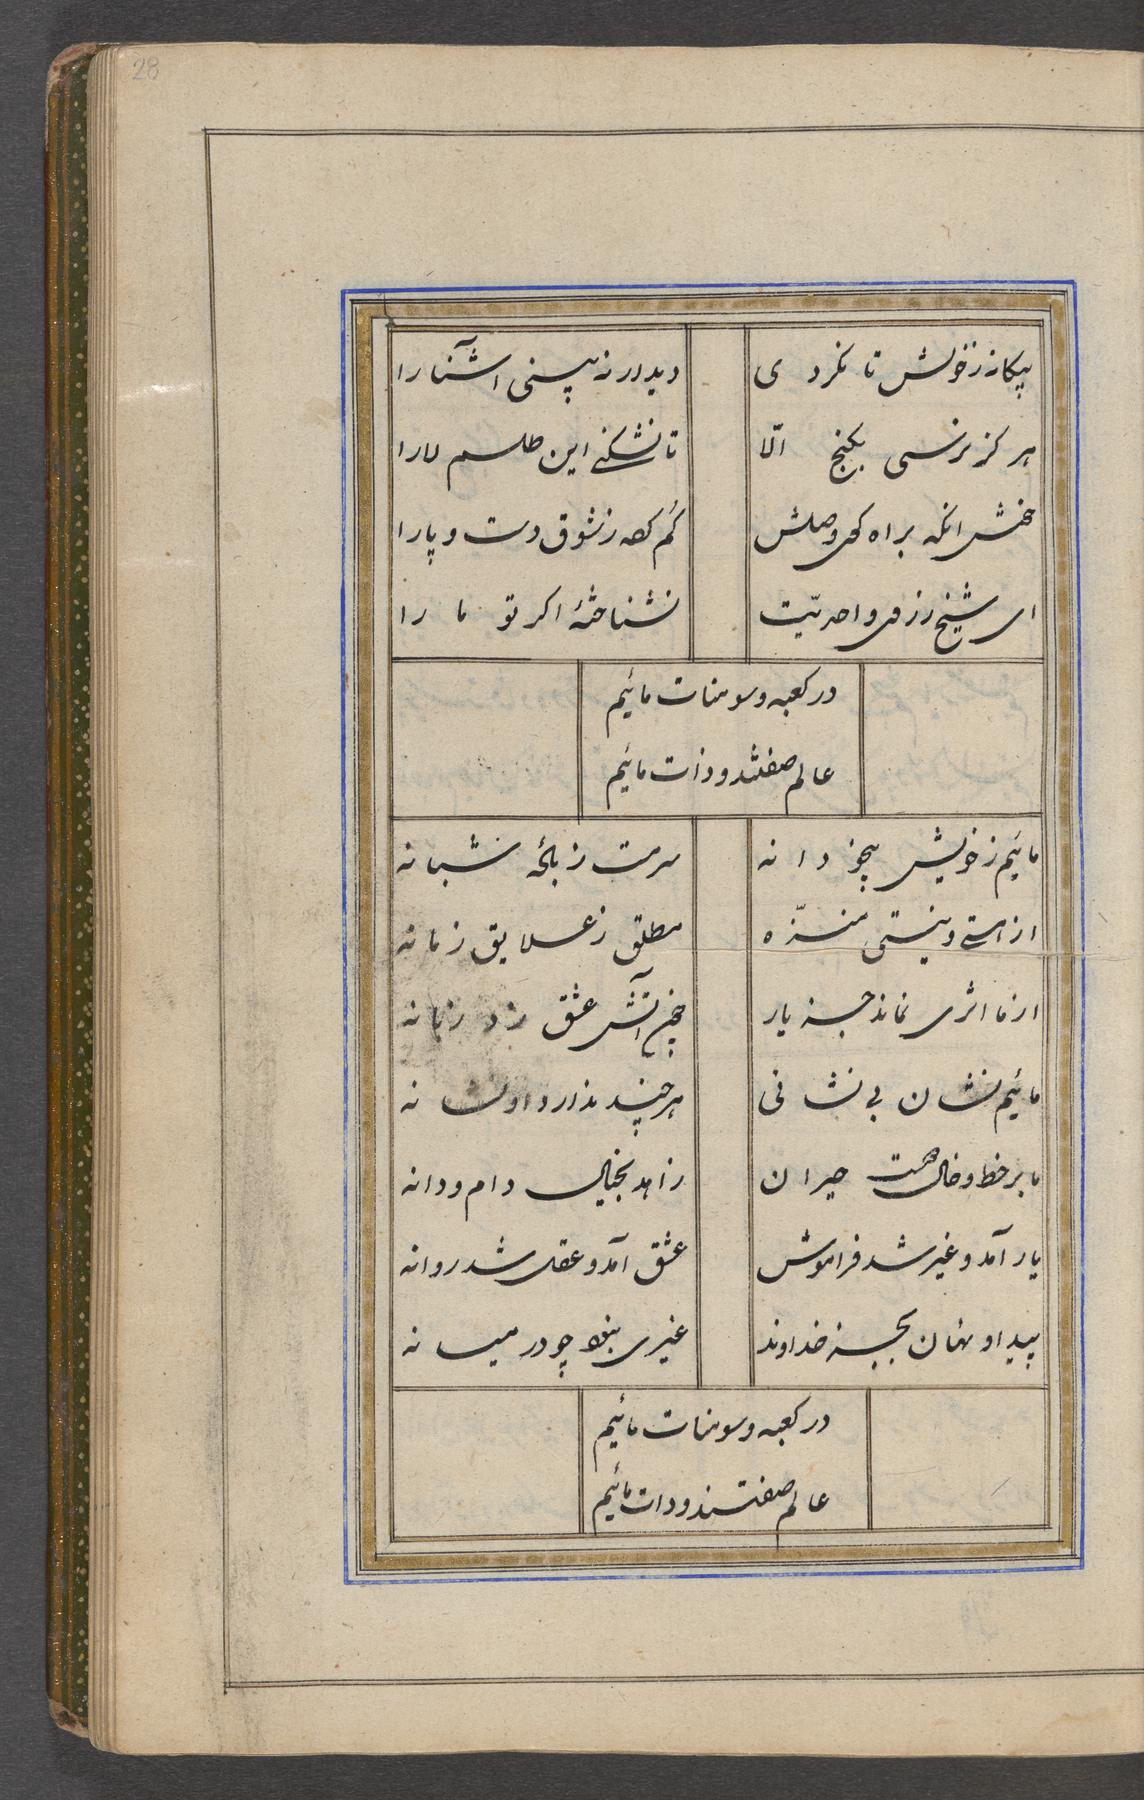 28
بیکانه زخویش تا نکردی
دیدار نه بینی آشنا را
هرکز نرسی بکنج الّا
تا نشکنی این طلسم لا را
خوش انکه براه کوی وصلش
کم کرد ز شوق دست و پا را
ای شیخ ز زمره احدیّت
نشناختهٔ اکر تو ما را
در کعبه و سومنات مائیم
عالم صفتند و ذات مائیم
مائیم ز خویش بیخودانه
سرمست ز بادهٔ شبانه
از هستی و نیستی منزّه
مطلق ز علایق زمانه
از ما اثری نماند جز یار
آتش عشق زد زبانه
مائیم نشان بی نشانی
هرچند ندارد او نشانه
ما بر خط و خال هست حیران
زاهد بخیال دام و دانه
یار آمد و غیر شد فراموش
عشق آمد و عقل شد روانه
پیدا و نهان بجز خداوند
غیری نبود چو در میانه
در کعبه و سومنات مائیم
عالم صفتند و ذات مائیم